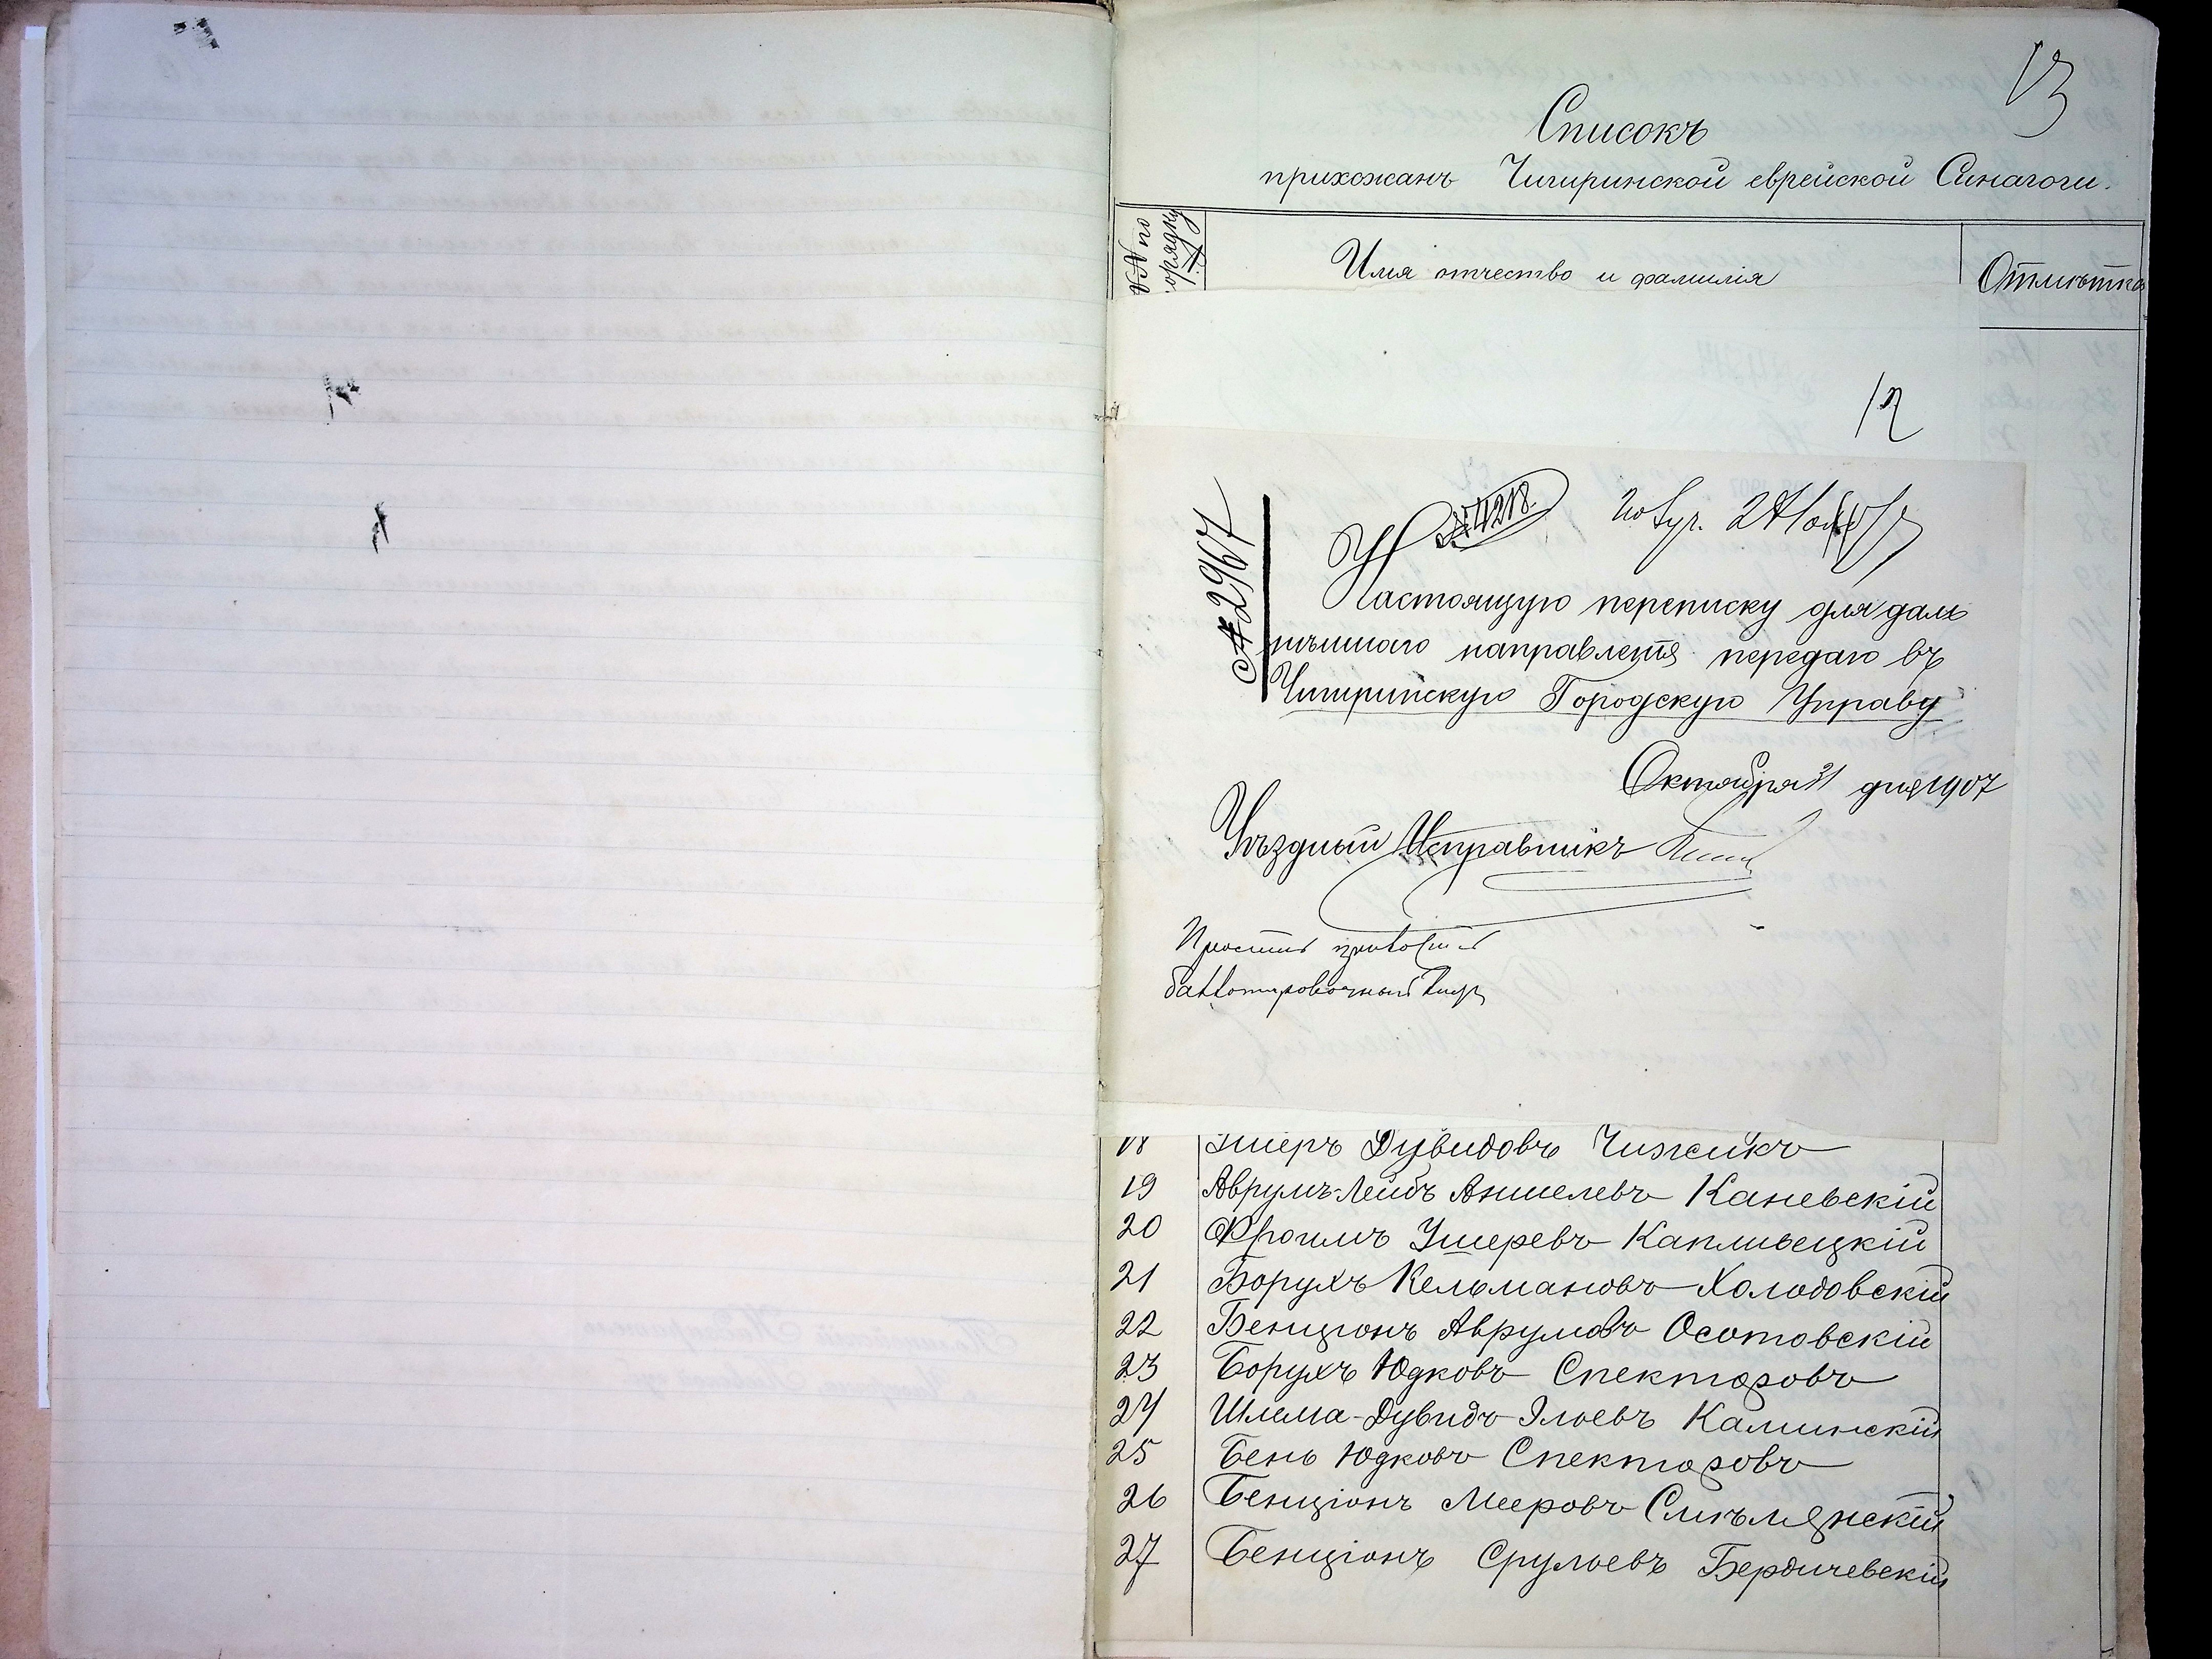 13
Списокъ
прихожанъ Чигиринской еврейской Синагоги.
№№ по порядку
Имя отчество и фамилія
Отмѣтка
12
№ 4218.
№ 2967
Настоящую переписку для даль
нѣйшаго направленія передаю въ
Чигиринскую Городскую Управу
Октября 31 дня 1907
Уѣздный Исправникъ
баллотировочный
18 Ушеръ Дувидовъ Чижикъ
19 Аврумъ-Лейбъ Аншелевъ Каневскій
20 Фроимъ Ушеревъ Капливецкій
21 Борухъ Кельмановъ Холодовскій
22 Бенціонъ Аврумовъ Осотовскій
23 Борухъ Юдковъ Спекторовъ
24 Шлема-Дувидъ Элоевъ Калинскій
25 Бень Юдковъ Спекторовъ
26 Бенціонъ Мееровъ Смѣлянскій
27 Бенціонъ Срулоевъ Бердичевскій